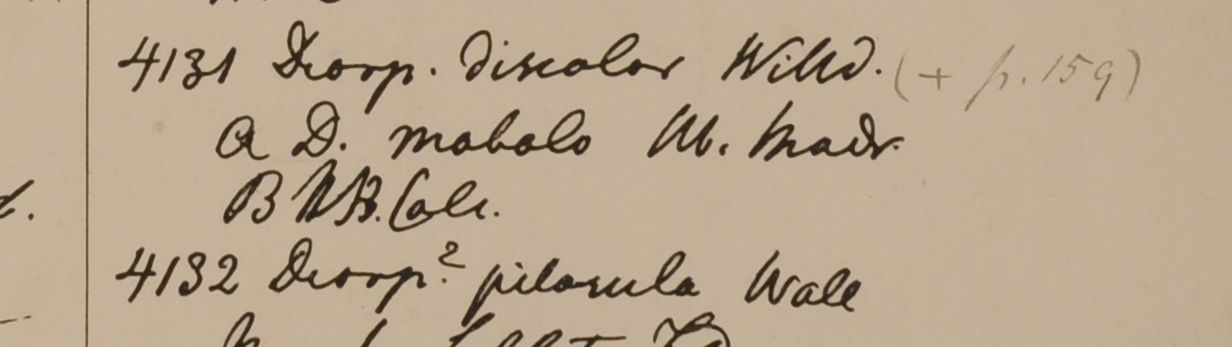 4131 Diosp. discolor Willd. (+ p. 159)
A D. mabolo M. Madr.
B H.B. Calc.
4132 Diosp.? pilosula Wall